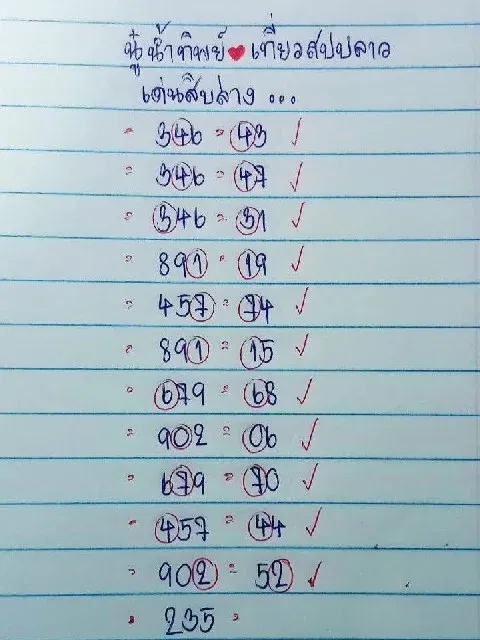 นู๋น้ำทิพย์ ❤ เที่ยวสปปลาว
เด่นสิบล่าง ...
- 346 = 43 ✓
- 346 = 47 ✓
- 346 = 31 ✓
- 891 = 19 ✓
- 457 = 74 ✓
- 891 = 15 ✓
- 679 = 68 ✓
- 902 = 06 ✓
- 679 = 70 ✓
- 457 = 44 ✓
- 902 = 52 ✓
- 235 =